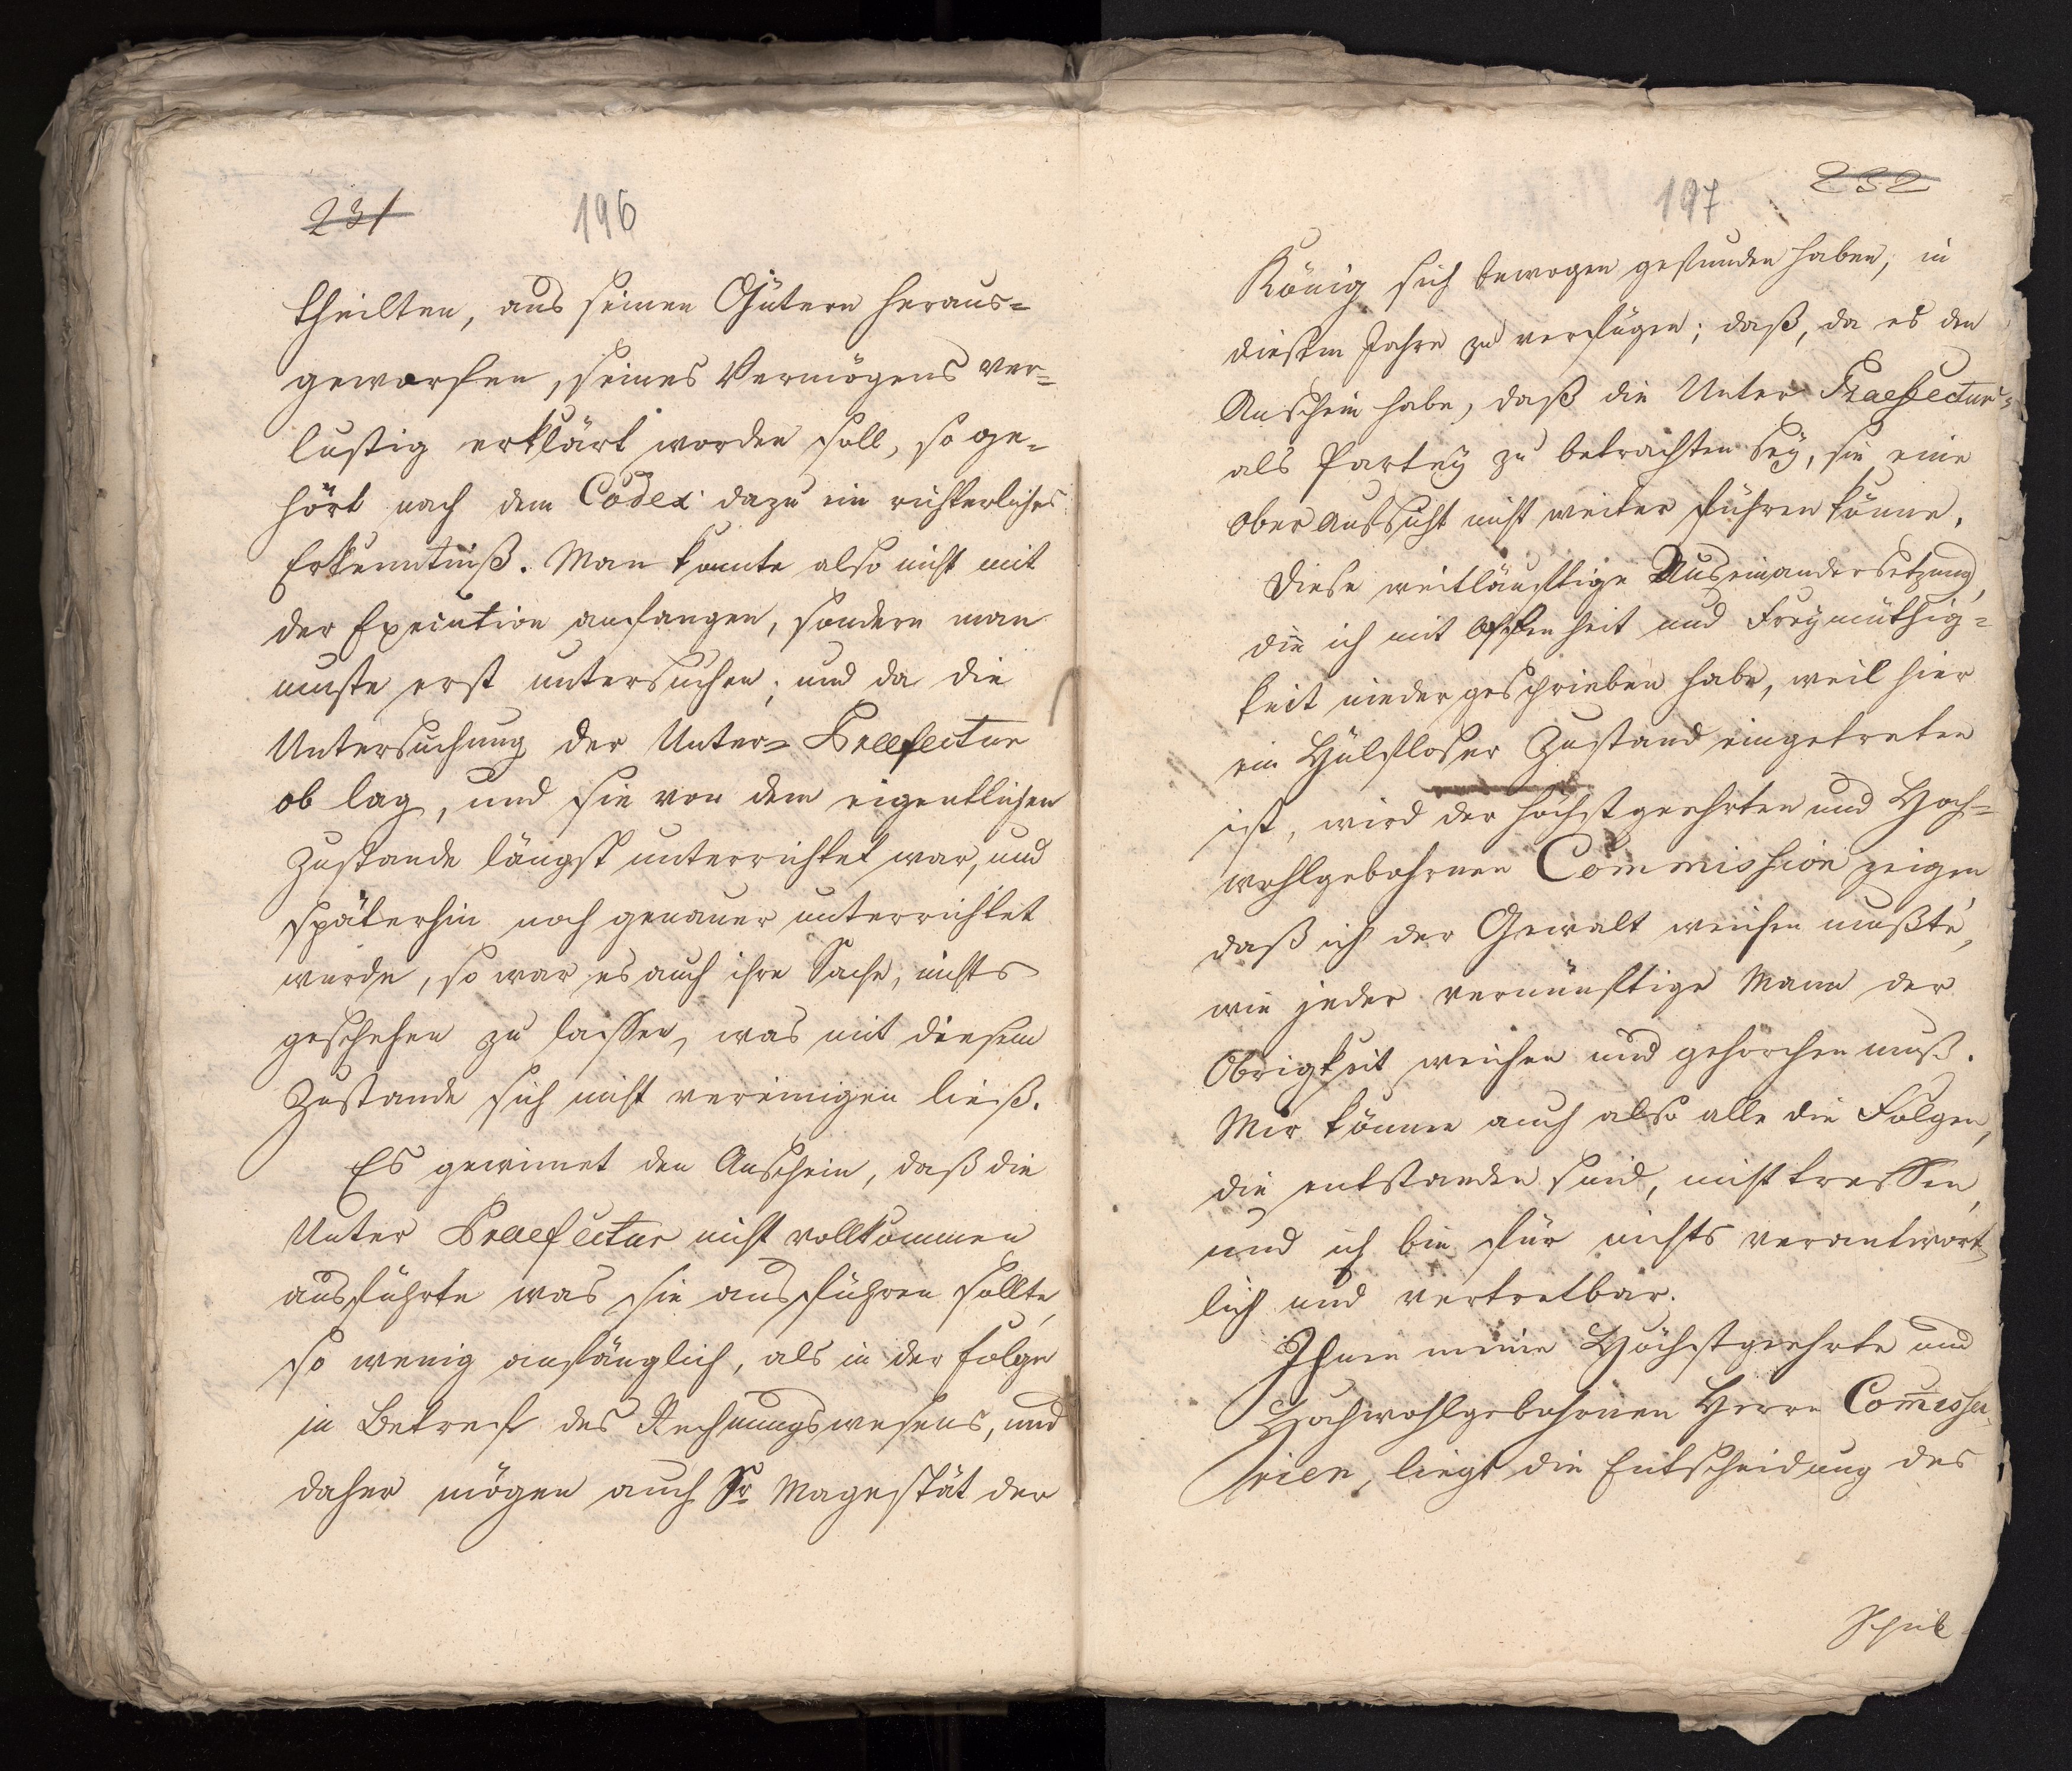 231 196
theilten, aus seinen Gütern heraus=
geworfen, seines Vermögens ver=
lustig erklärt worden soll, so ge=
hört nach dem Codex dazu ein richterliches
Erkenntniß. Man konnte also nicht mit
der Execution anfangen, sondern man
muste erst untersuchen; und da die
Untersuchung der Unter= Praefectur
ob lag, und sie von dem eigentlichen
Zustande längst unterrichtet war, und
späterhin noch genauer unterrichtet
wurde, so war es auch ihre Sache, nichts
geschehen zu lassen, was mit diesem
Zustande sich nicht vereinigen ließ.
Es gewinnet den Anschein, daß die
Unter Praefectur nicht vollkommen
ausführte was sie ausführen sollte,
so wenig anfänglich, als in der Folge
in Betref des Rechnungswesens, und
daher mögen auch Sr Magestät der
197 232
König sich bewogen gefunden haben, in
diesem Jahre zu verfügen; daß, da es den
Anschein habe, daß die Unter Praefectur=
als Partey zu betrachten sey, sie eine
Ober Aufsicht nicht weiter führen könne.
Diese weitläuftige Auseinandersetzung,
die ich mit Offenheit und Freymüthig=
keit niedergeschrieben habe, weil hier
ein Hülfloser Zustand eingetreten
ist, wird der höchstgeehrten und Hoch=
wohlgebohrnen Commission zeigen,
daß ich der Gewalt weichen mußte,
wie jeder vernünftige Mann der
Obrigkeit weichen und gehorchen muß.
Mir können auch also alle die Folgen,
die entstanden sind, nicht treffen,
und ich bin für nichts verantwort
lich und vertretbar.
Ihnen meine Höchstgeehrte und
Hochwohlgebohrnen Herrn Com̅issa=
rien, liegt die Entscheidung des